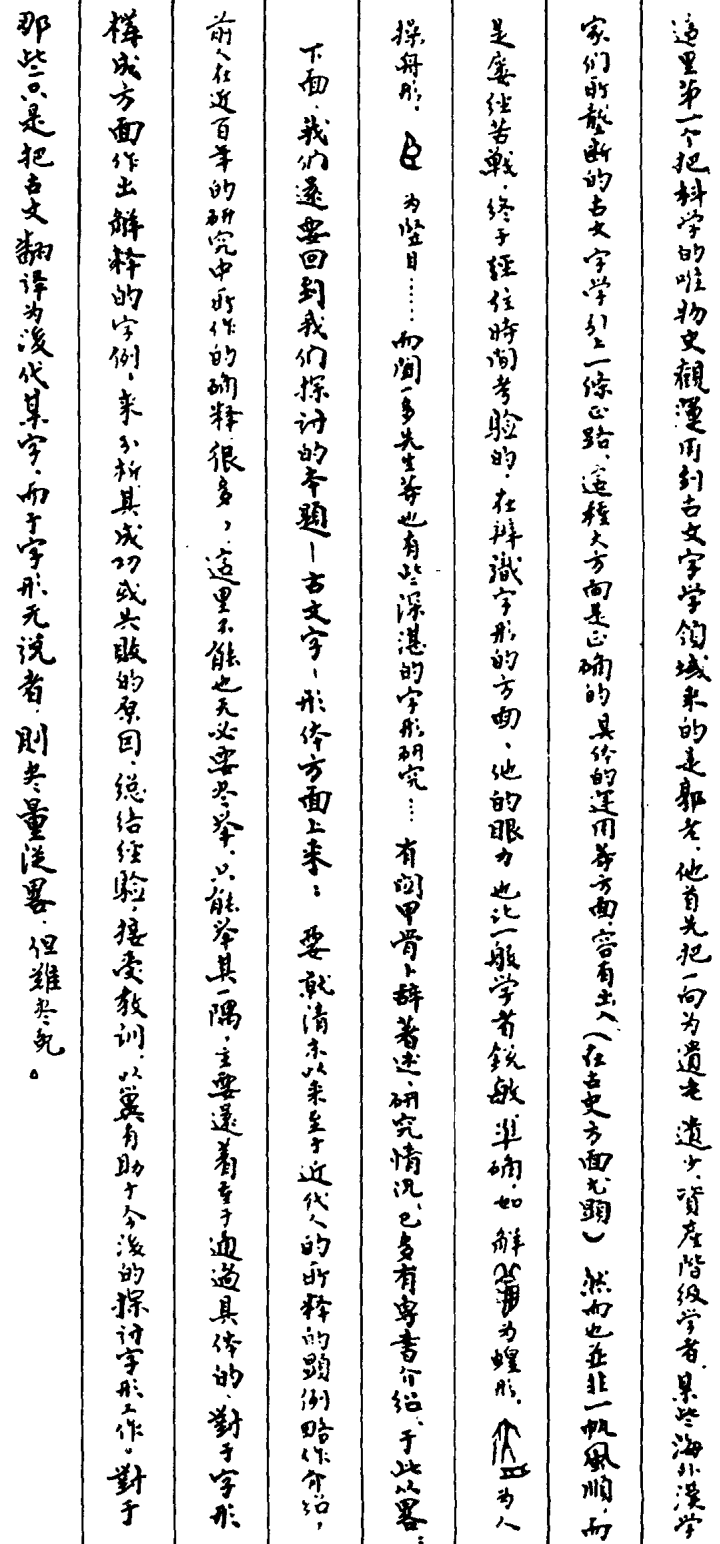 這里第一个把科学的唯物史觀運用到古文字学領域來的是郭老,他首先把一向为遺老遺少、資產階級学者、某些海外漢学
家們所壟断的古文字学引上一條正路,這種大方面是正确的,具体的運用等方面,容有出入(在古史方面尤顯)然而也並非一帆風順,而
是屡經苦戰,終于經住時間考驗的,在辨識字形的方面,他的眼力也比一般学者銳敏、準确,如解为蝗形,为人
操舟形,为竪目……而聞一多先生等也有些深湛的字形研究……有関甲骨卜辞著述、研究情况,已多有專書介紹,于此从畧:
下面,我們還要回到我們探討的本題—古文字—形体方面上來;要就清末以來至于近代人的所释的顯例略作介紹,
前人在近百年的研究中所作的确释很多,這里不能也无必要尽举,只能举其一隅,主要還着重于通過具体的、對于字形
構成方面作出解释的字例,來分析其成功或失敗的原因,總结經驗,接受教訓,以冀有助于今後的探討字形工作。對于
那些只是把古文翻譯为後代某字,而于字形无說者,則尽量從畧,但難尽免。